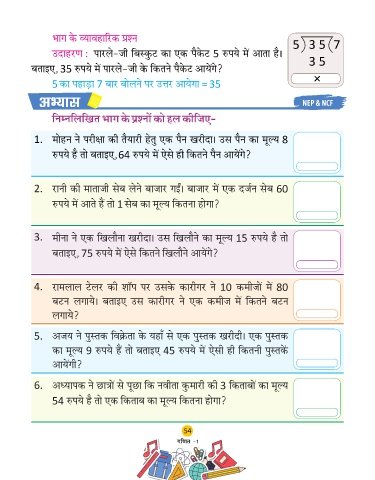 भाग के व्यावहारिक प्रश्न
उदाहरण : पारले-जी बिस्कुट का एक पैकेट 5 रुपये में आता है।
बताइए, 35 रुपये में पारले-जी के कितने पैकेट आयेंगे?
5 का पहाड़ा 7 बार बोलने पर उत्तर आयेगा = 35
5)35(7
35
×
अभ्यास
NEP & NCF
निम्नलिखित भाग के प्रश्नों को हल कीजिए-
1. मोहन ने परीक्षा की तैयारी हेतु एक पैन खरीदा। उस पैन का मूल्य 8
रुपये है तो बताइए, 64 रुपये में ऐसे ही कितने पैन आयेंगे?
2. रानी की माताजी सेब लेने बाजार गईं। बाजार में एक दर्जन सेब 60
रुपये में आते हैं तो 1 सेब का मूल्य कितना होगा?
3. मीना ने एक खिलौना खरीदा। उस खिलौने का मूल्य 15 रुपये है तो
बताइए, 75 रुपये में ऐसे कितने खिलौने आयेंगे?
4. रामलाल टेलर की शॉप पर उसके कारीगर ने 10 कमीजों में 80
बटन लगाये। बताइए उस कारीगर ने एक कमीज में कितने बटन
लगाये?
5. अजय ने पुस्तक विक्रेता के यहाँ से एक पुस्तक खरीदी। एक पुस्तक
का मूल्य 9 रुपये हैं तो बताइए 45 रुपये में ऐसी ही कितनी पुस्तकें
आयेंगी?
6. अध्यापक ने छात्रों से पूछा कि नवीता कुमारी की 3 किताबों का मूल्य
54 रुपये है तो एक किताब का मूल्य कितना होगा?
54
गणित -1